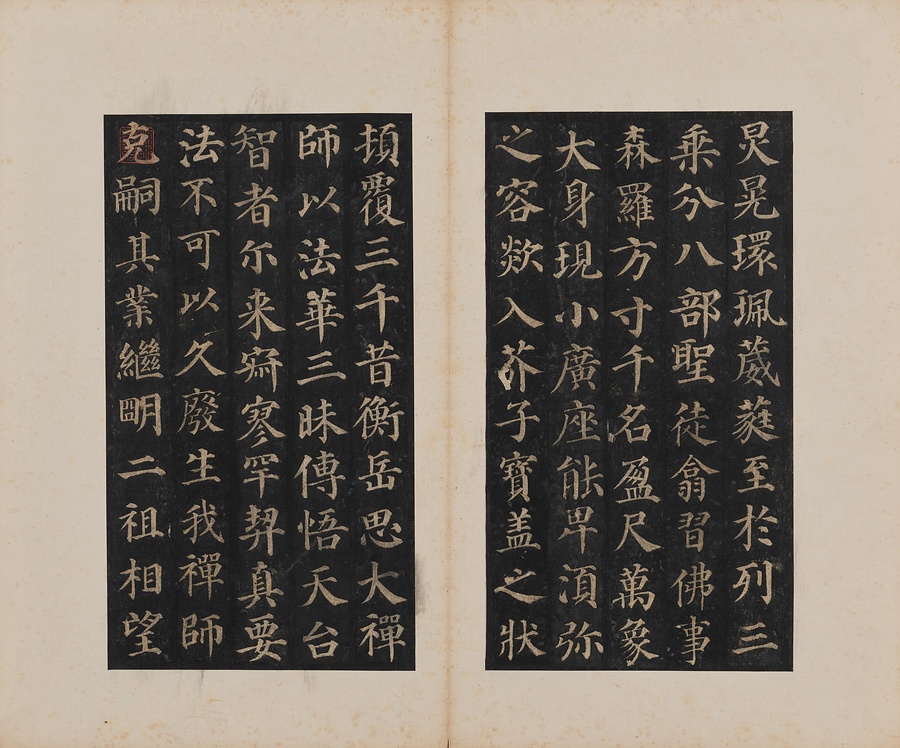 炅晃環珮葳蕤至於列三
乘分八部聖徒翕習佛事
森羅方寸千名盈尺萬象
大身現小廣座能卑湏弥
之容欻入芥子寶盖之狀
頓覆三千昔衡岳思大禪
師以法華三昧傳悟天台
智者尒来寂寥罕契真要
法不可以久廢生我禪師
克嗣其業繼明二祖相望